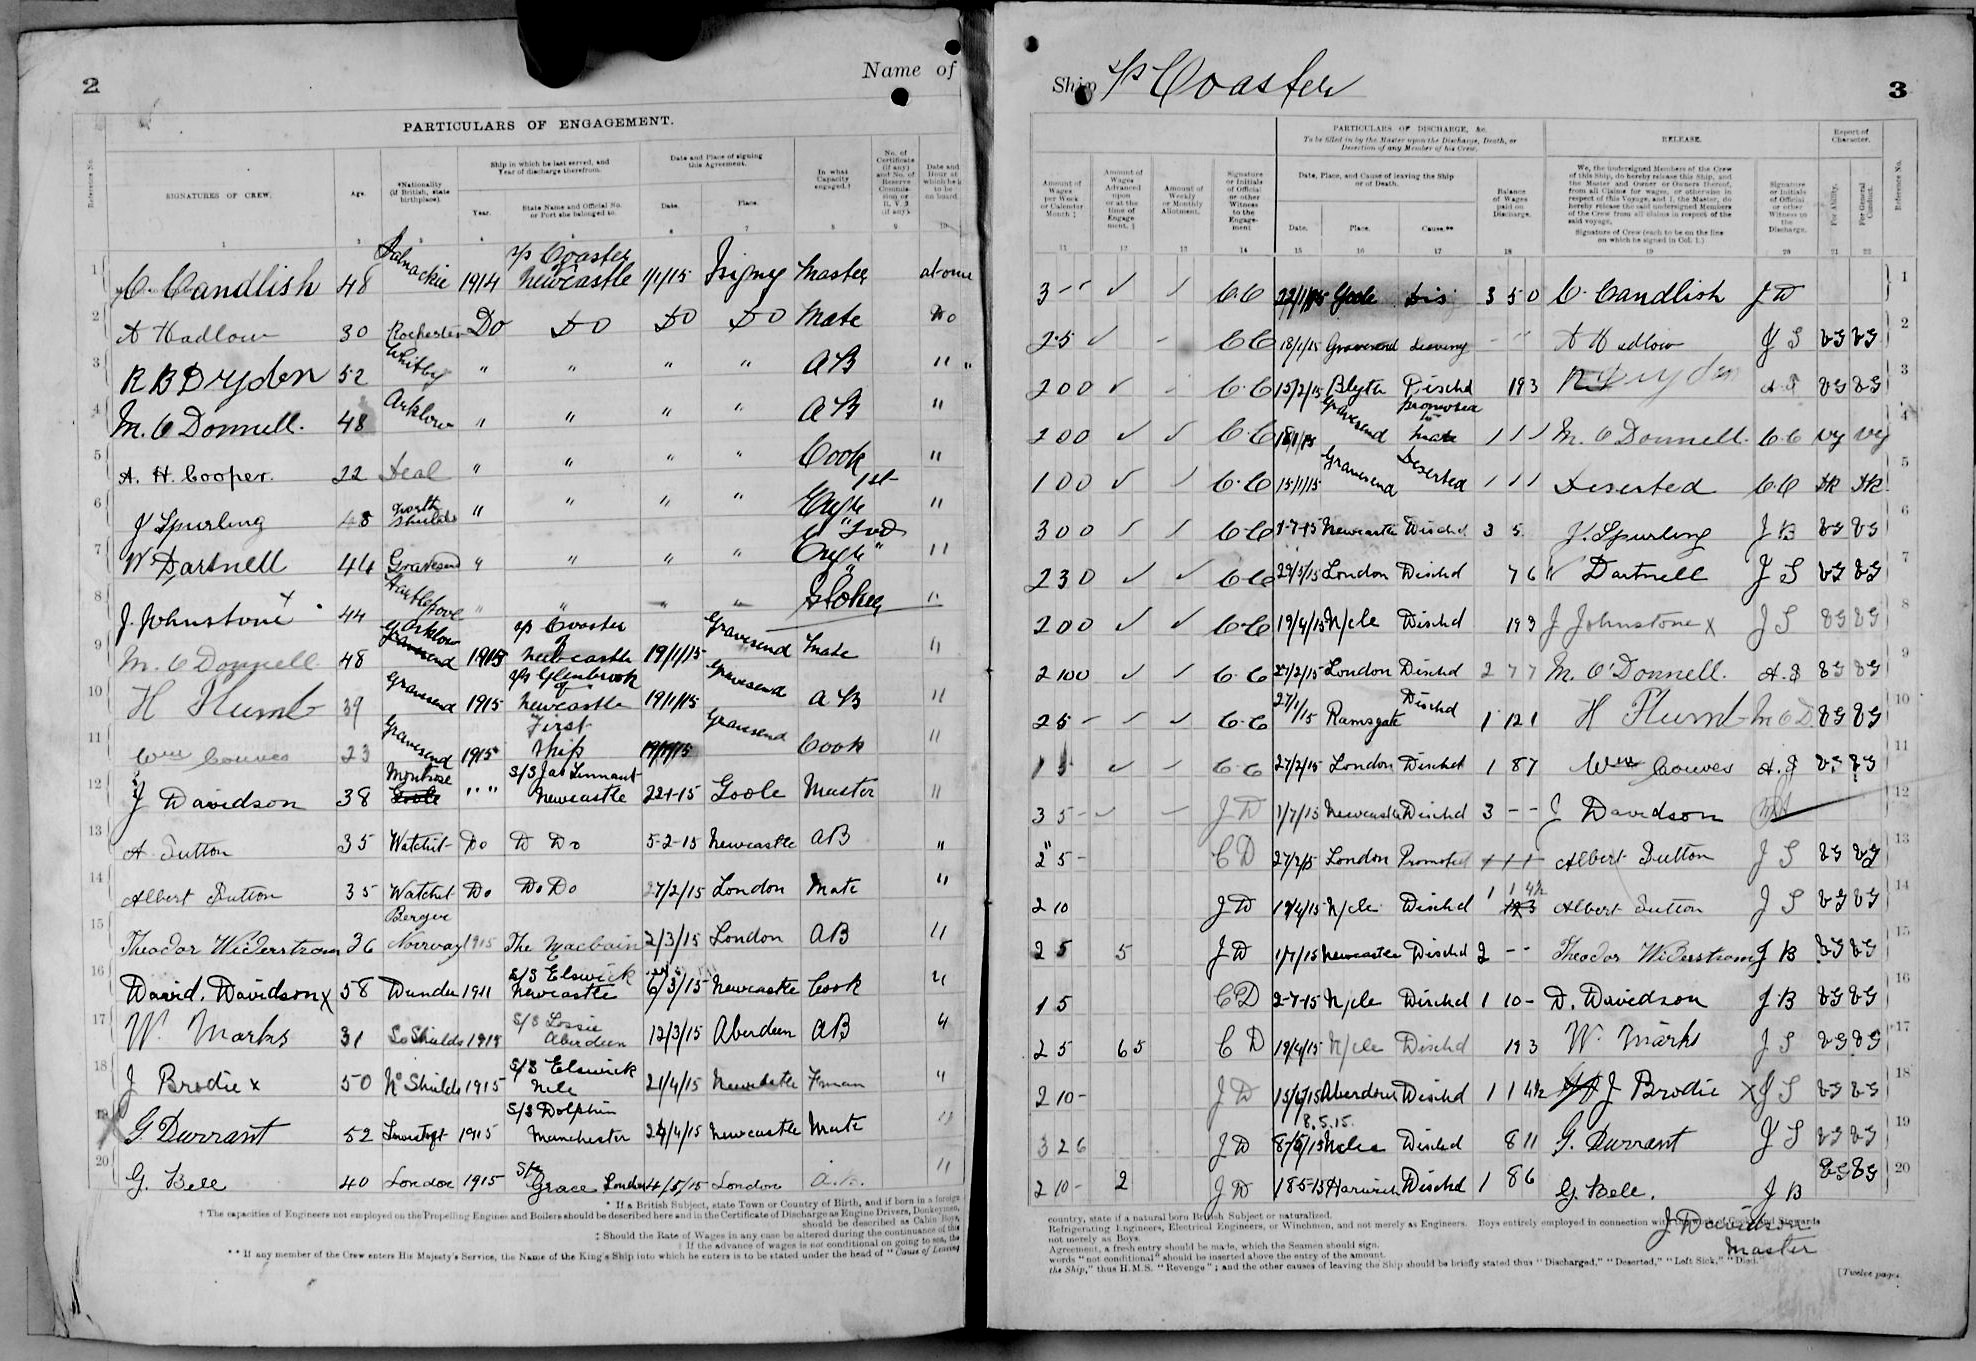 2
Name of
Ship S/S Coaster
3
PARTICULARS OF ENGAGEMENT.
Reference No.
SIGNATURES OF CREW.
Age.
*Nationality (if British, state birthplace).
Ship in which he last served, and Year of discharge therefrom.
Year.
State Name and Official No. or Port she belonged to.
Date and Place of signing this Agreement.
Date.
Place.
In what Capacity engaged.†
No. of Certificate (if any) and No. of Reserve Commission or R.V.2 (if any).
Date and Hour at which he is to be on board.
1 C. Candlish 48 1914 S/S Coaster Newcastle 1/1/15 Master at once
2 A Hadlow 30 Rochester Do Do Do Do Mate Do
3 R B Dryden 52 Whitby " " " " AB " "
4 M. O Donnell. 48 Arklow " " " " AB "
5 A. H. Cooper. 22 Deal " " " " Cook "
6 J Spurling 48 North Shields " " " " 1st "
7 W Dartnell 44 Gravesend " " " " "
8 J. Johnstone x 44 Hartlepool " " " " Stoker "
9 M. O Donnell 48 Arklow Gravesend 1915 S/S Coaster of Newcastle 19/1/15 Gravesend Mate "
10 H Flumb 39 Gravesend 1915 S/S Glenbrook of Newcastle 19/1/15 Gravesend AB "
11 Wm Couves 23 Gravesend 1915 First Ship 19/1/15 Gravesend Cook "
12 J Davidson 38 Montrose Goole " " S/S Jas Tennant Newcastle 22-1-15 Goole Master "
13 A. Sutton 35 Watchet Do D Do 5-2-15 Newcastle AB "
14 Albert Sutton 35 Watchet Do Do Do 27/2/15 London Mate "
15 Theodor Widerstrom 36 Bergen Norway 1915 The 2/3/15 London AB "
16 David. Davidson x 58 Dundee 1911 S/S Elswick Newcastle 6/3/15 Newcastle Cook "
17 W. Marks 31 So Shields 1915 S/S Lossie Aberdeen 12/3/15 Aberdeen AB "
18 J Brodie x 50 No Shields 1915 S/S Elswick Ncle 21/4/15 Newcastle Fman "
19 G Durrant 52 Lowestoft 1915 S/S Dolphin Manchester 24/4/15 Newcastle Mate "
20 G. Bell 40 London 1915 S/S Grace London 4/5/15 London A.B. "
* If a British Subject, state Town or Country of Birth, and if born in a foreign
† The capacities of Engineers not employed on the Propelling Engines and Boilers should be described here and in the Certificate of Discharge as Engine Drivers, Donkeymen,
should be described as Cabin Boys
‡ Should the Rate of Wages in any case be altered during the continuance of this
If the advance of wages is not conditional on going to sea, the
** If any member of the Crew enters His Majesty's Service, the Name of the King's Ship into which he enters is to be stated under the head of "Cause of Leaving
Amount of Wages per Week or Calendar Month ‡
Amount of Wages Advanced upon or at the time of Engagement.
Amount of Weekly or Monthly Allotment.
Signature or Initials of Official or other Witness to the Engagement
PARTICULARS OF DISCHARGE, &c.
To be filled in by the Master upon the Discharge, Death, or Desertion of any Member of his Crew.
Date, Place, and Cause of leaving the Ship or of Death.
Date.
Place.
Cause.**
Balance of Wages paid on Discharge.
RELEASE.
We, the undersigned Members of the Crew of this Ship, do hereby release this Ship, and the Master and Owner or Owners thereof, from all Claims for wages, or otherwise in respect of this Voyage, and I, the Master, do hereby release the said undersigned Members of the Crew from all claims in respect of the said voyage.
Signature of Crew (each to be on the line on which he signed in Col. 1.)
Signature or Initials of Official or other Witness to the Discharge.
Report of Character.
For Ability.
For General Conduct.
Reference No.
3 - - ✓ ✓ C C 22/1/15 Goole Dis 3 5 0 C. Candlish J D 1
2-5 ✓ - C C 18/1/15 Gravesend Leaving - - A Hadlow J S VG VG 2
2 0 0 ✓ - C.C 15/2/15 Blyth Dischd 19 3 R Dryden A.S VG VG 3
2 0 0 ✓ ✓ C.C 18/1/15 Gravesend promoted to Mate M. O Donnell. C.C VG VG 4
1 0 0 ✓ ✓ C.C 15/1/15 Gravesend Deserted Deserted C.C 5
3 0 0 ✓ ✓ C C 1-7-15 Newcastle Dischd 3 5 J. Spurling J B VG VG 6
2 3 0 ✓ ✓ C C 29/5/15 London Dischd 7 6 W Dartnell J S VG VG 7
2 0 0 ✓ ✓ C.C 19/4/15 N/cle Dischd 19 3 J Johnstone x J S VG VG 8
2 10 0 ✓ ✓ C.C 27/2/15 London Dischd 2 7 7 M. O'Donnell. A.S VG VG 9
2 5 - ✓ ✓ C.C 27/1/15 Ramsgate Dischd 1 12 1 H Flumb M O D VG VG 10
1 5 ✓ ✓ C.C 27/2/15 London Dischd 1 8 7 Wm Couves A.S VG VG 11
3 5 - ✓ - J D 1/7/15 Newcastle Dischd 3 - - J Davidson 12
2 5 - C D 27/2/15 London Promoted Albert Sutton J S VG VG 13
2 10 J D 19/4/15 N/cle Dischd 1 1 4½ Albert Sutton J S VG VG 14
2 5 5 J D 1/7/15 Newcastle Dischd 2 - - Theodor Widerstrom J B VG VG 15
1 5 C D 2-7-15 N/cle Dischd 1 10 - D. Davidson J B VG VG 16
2 5 6 5 C D 19/4/15 N/cle Dischd 19 3 W. Marks J S VG VG 17
2 10 - J D 15/6/15 Aberdeen Dischd 1 1 4½ J Brodie x J S VG VG 18
3 2 6 J D 8.5.15. 8/5/15 Ncle Dischd 8 11 G. Durrant J S VG VG 19
2 10 - 2 J D 18-5-15 Harwich Dischd 1 8 6 G. Bell. J B VG VG 20
J Davidson
Master
country, state if a natural born British Subject or naturalized.
Refrigerating Engineers, Electrical Engineers, or Winchmen, and not merely as Engineers. Boys entirely employed in connection with
not merely as Boys.
Agreement, a fresh entry should be made, which the Seamen should sign.
words "not conditional" should be inserted above the entry of the amount.
the Ship," thus H.M.S. "Revenge"; and the other causes of leaving the Ship should be briefly stated thus "Discharged," "Deserted," "Left Sick," "Died."
[Twelve pages